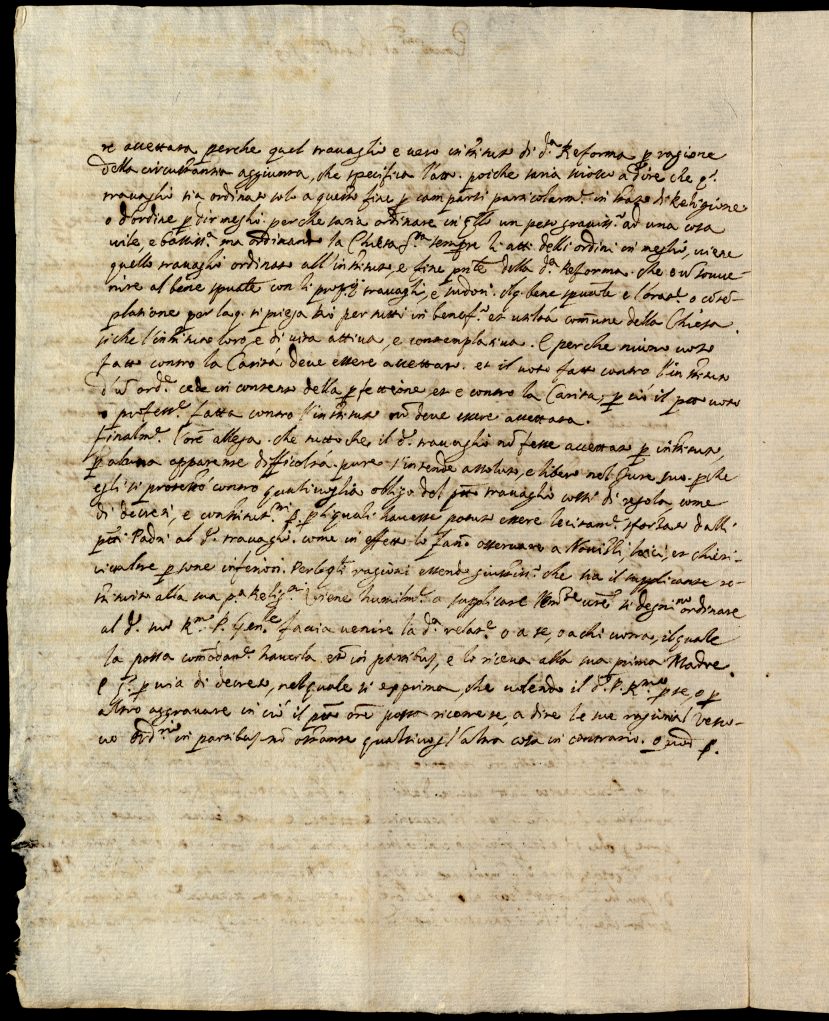 re accettata perche quel travaglio e vero instituto di d.ª Reforma p ragione
della circunstanza aggiunta, che specifica l'atto. poiche saria sciocco a dire che q.º
travaglio sia ordinato solo a questo fine p camparsi particolarm.te in stato di Religione
o d'ordine p perche saria ordinare in un peso graviss.º ad una cosa
vile, e bassiss.ª ma ordinando la Chiesa S.ta sempre li atti delli ordini in meglio, viene
quello travaglio ordinato all'instituto, e fine della d.ª Reforma. che e di souve-
nire al bene con li proprij travagli, e sudori. bene e l'oraz.e o cōtē-
platione per la q. si priega Dio per tutti in benef.º et utilità com̄une della Chiesa.
siche l'instituto loro, e di vita attiva, e contemplativa. E perche niuno voto
fatto contro la Carità deve essere accettato. et il voto fatto contro l'instituto
d'ū ord.e cede in della pfettione et e contro la Carità, p ciò il voto
o profess.e fatta contro l'instituto nō deve essere accettata.
Finalm.te l'ore allega. che tutto che il d.º travaglio nō fosse accettato p instituto,
p alcuna apparente difficoltà. pure s'intende assoluto, e libero nel pche
egli si protestò contro qualsivoglia obligo del travaglio sotto di regola, come
di decreti, e constitut.ni p li quali havesse potuto essere lecitam.te sforzato dalli
Padri al d.º travaglio. come in effetto lo fanō osservare a Novitij, laici, et chieri-
ci psone inferiori. Per le q.li ragioni essendo giustiss.º che sia il supplicante re-
stituito alla sua p.ª Relig.ne viene humilm.te a supplicare si degni ordinare
al d.º suo R.mo P. Gen.le faccia venire la d.ª relat.e o a se, o a chi vorrà, il quale
la possa comodam.te haverla in partibus, e lo riceva alla sua prima Madre.
E p via di decreto, nel quale si esprima, che volendo il d.º P. R.mo p se, o p
altro aggravare in ciò il ore possa ricorrere, a dire le sue ragioni al Vesco-
vo ord.rio in partibus nō ostante qualsivog.l altra cosa in contrario. quod